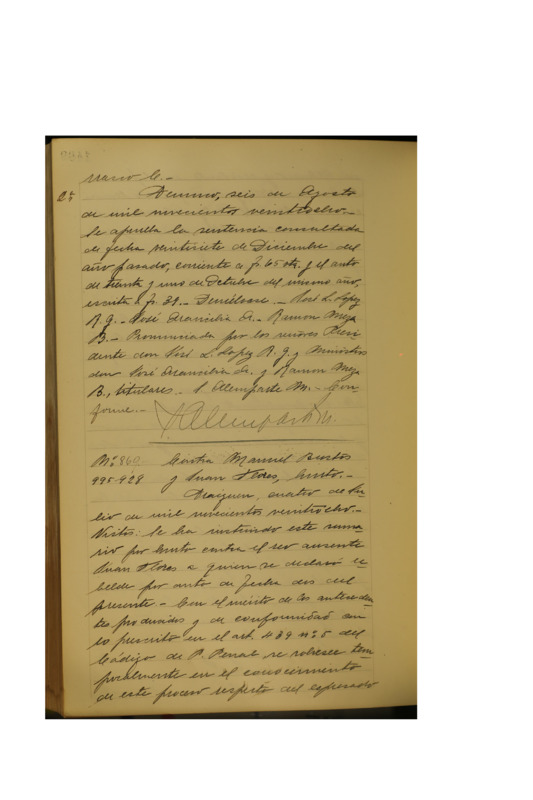 rraco C.-
2a Temuco, seis de Agosto
de mil novecientos veintiocho.-
Se aprueba la sentencia consultada
de fecha veintisiete de Diciembre del
año pasado, corriente a fs. 45 vta. y el auto
de treinta y uno de Octubre del mismo año,
escrito a fs. 39.- Devuélvase.- José L. Lopez
R. G.- José A.- Ramon Meza
B.- Pronunciada por los señores Presi-
dente don José L. Lopez R. G. y Ministros
don José A. y Ramon Meza
B., titulares.- Allemparte M.- Con-
forme.- Allemparte M.
No. 860 Contra Manuel Bustos
995-928 y Juan Flores, hurto.-
Traiguen, cuatro de Ju-
lio de mil novecientos veintiocho.-
Vistos: Se ha instruido este suma-
rio por hurto contra el reo ausente
Juan Flores a quien se declaró re-
belde por auto de fecha dos del
presente.- Con el mérito de los anteceden-
tes producidos y de conformidad con
lo prescrito en el art. 439 no. 5 del
Código de P. Penal se sobresee tem-
poralmente en el conocimiento
de este proceso respecto del expresado